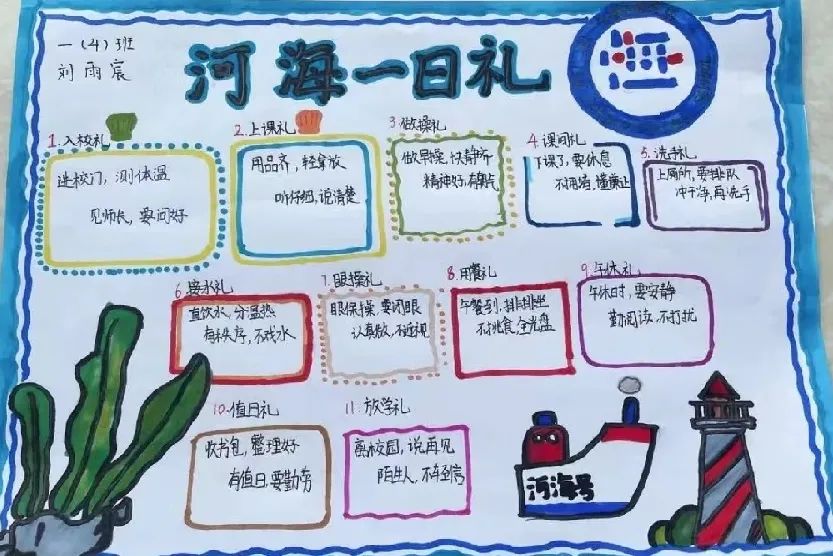 一(4)班
刘雨宸
河海一日礼
1.入校礼
进校门，测体温
见师长，要问好
2.上课礼
用品齐，轻拿放
听仔细，说清楚
3.做操礼
做早操，快静齐
精神好，有朝气
4.课间礼
下课了，要休息
不打闹，懂谦让
5.洗手礼
上厕所，要排队
冲干净，再洗手
6.接水礼
直饮水，分温热
有秩序，不戏水
7.眼操礼
眼保操，要闭眼
认真做，不近视
8.用餐礼
午餐到，排排坐
不挑食，全光盘
9.午休礼
午休时，要安静
勤阅读，不打扰
10.值日礼
收书包，整理好
有值日，要勤劳
11.放学礼
离校园，说再见
陌生人，不轻信
河海号